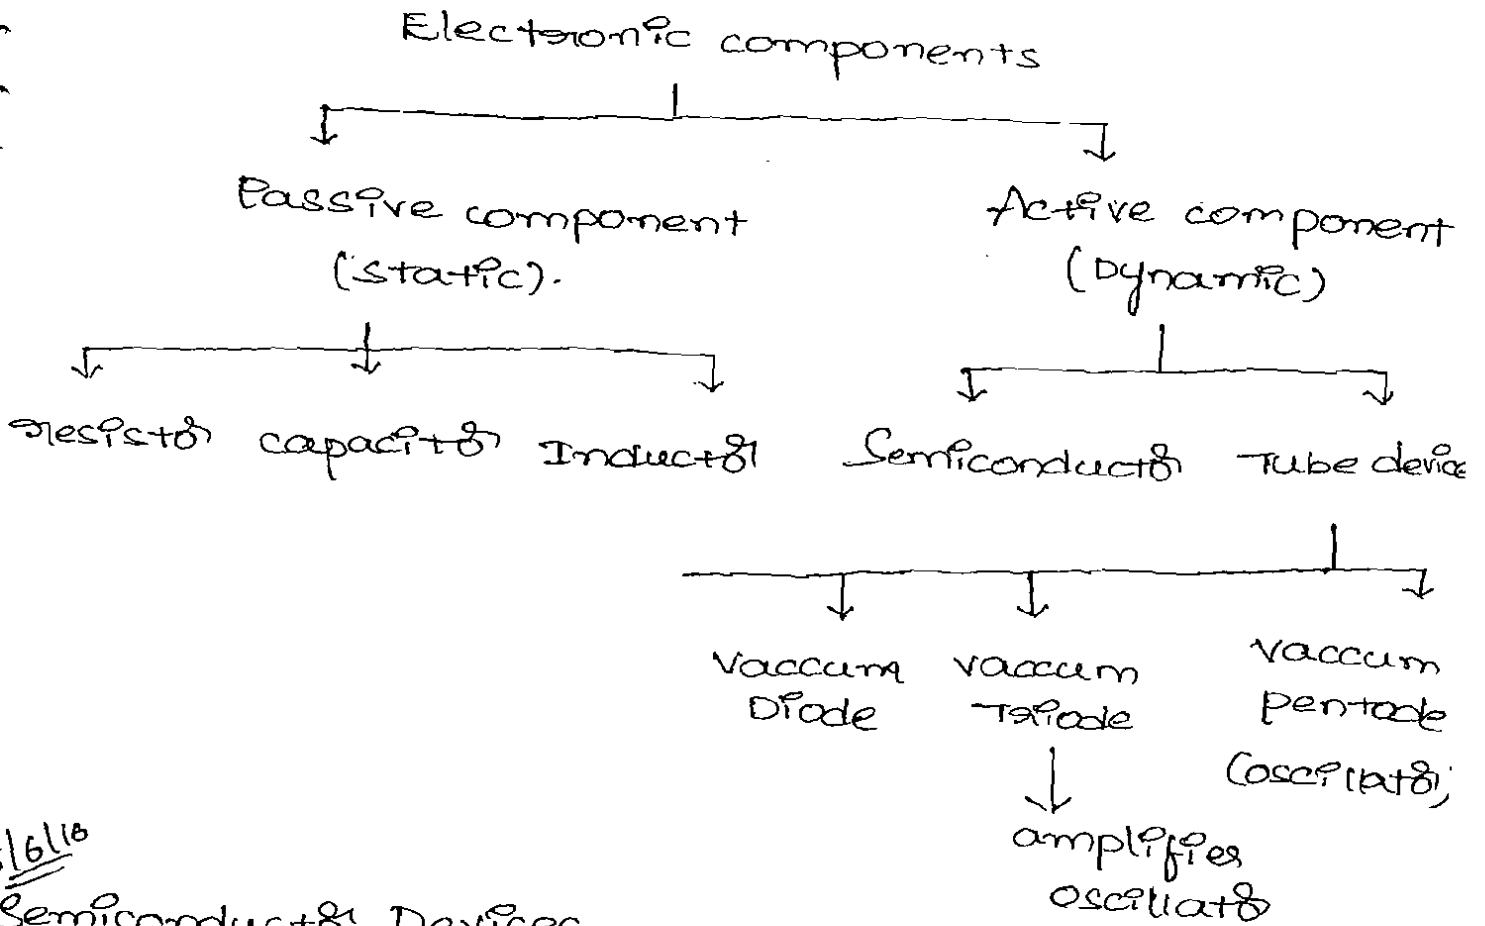 Electronic components
Passive component
(static).
Active component
(Dynamic)
resistor capacitor Inductor Semiconductor Tube device
Vaccum
Diode
vaccum
Triode
vaccum
pentode
(oscillator)
amplifier
oscillator
/6/18
Semiconductor Devices